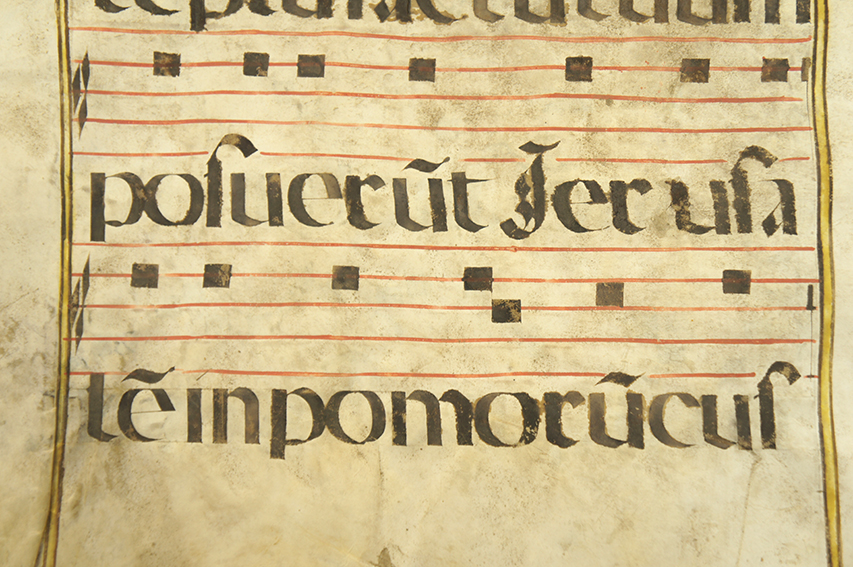 poſuerūt Jeruſa
lē in pomorū cuſ